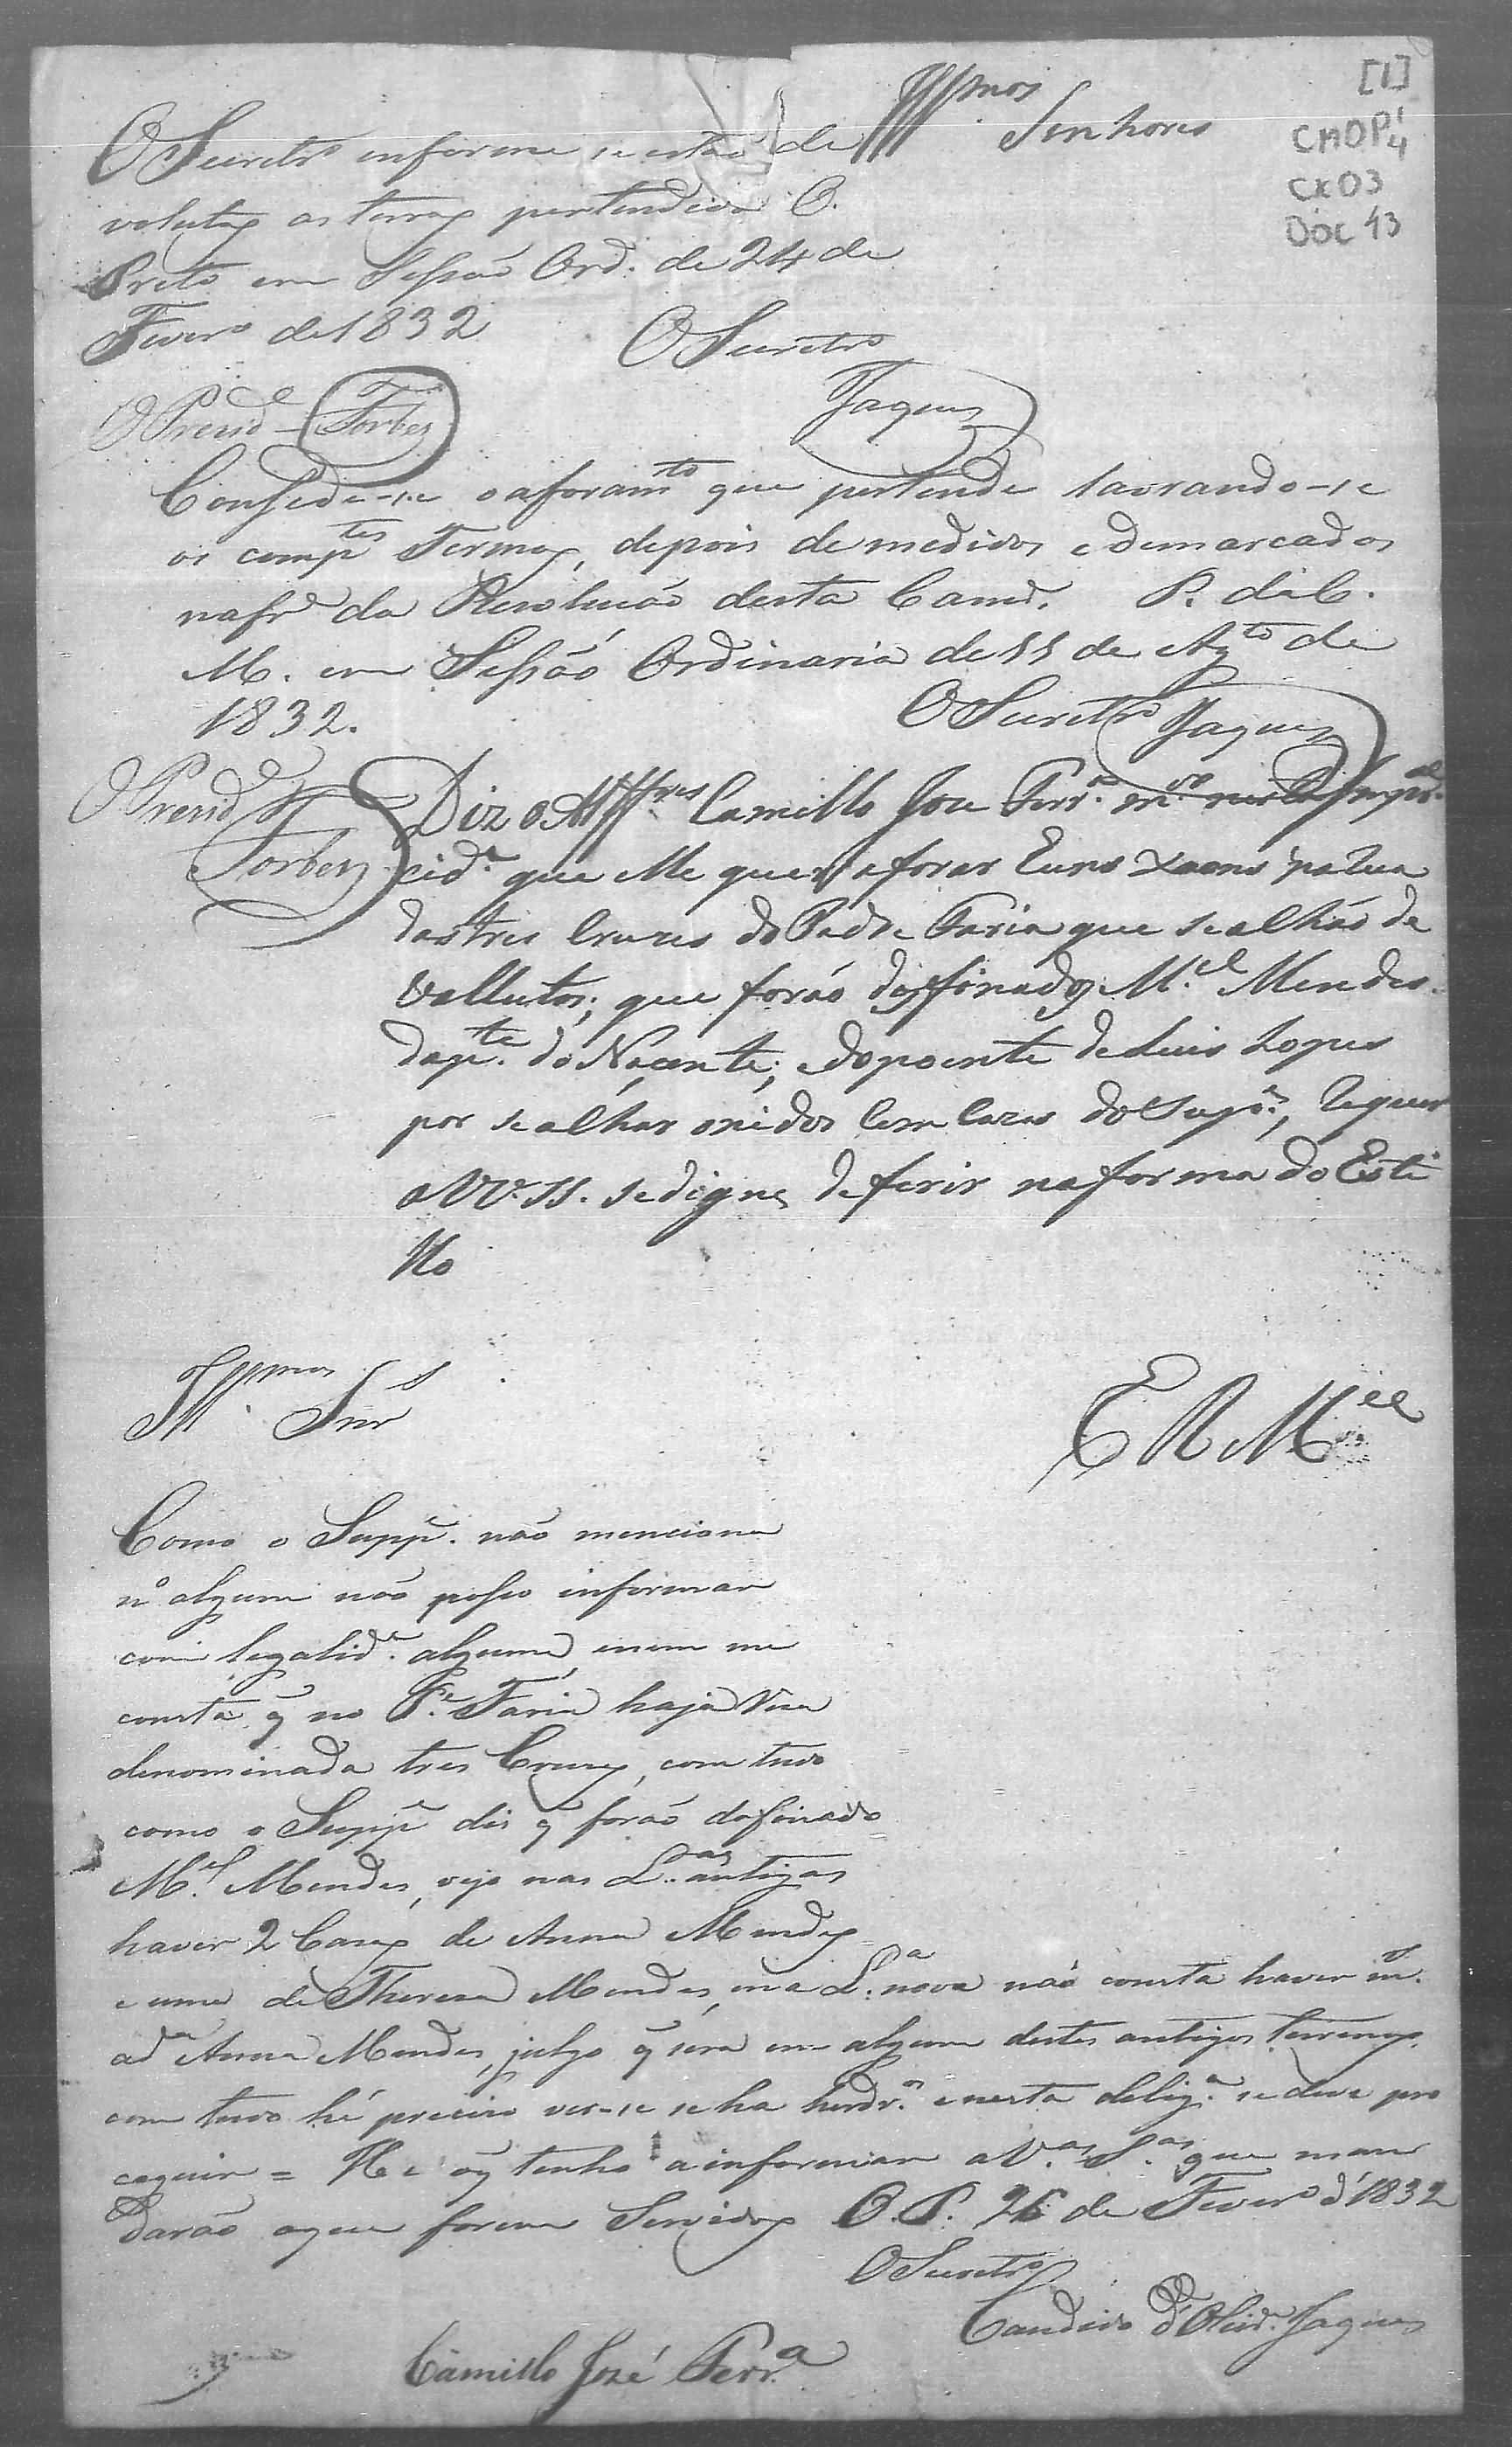 [1]
CMOP 1/4
CX03
Doc 43
Illmos Senhores
O Secretrº informe se estão de
volutas as terras pertendidas O.
Preto em Sessão Ord. de 24 de
Feverº de 1832
O Secretrº
Jaques
O Presidᵉ Torbes
Consede-se o aforamᵗº que pertende lavrando-se
os compᵗᵉˢ Termos, depois de medidos e demarcados
na frª da Resolução desta Camª. P. da C.
M. em Sessão Ordinaria de 11 de Agᵗº de
1832.
O Secretrº Jaques
O Presidᵉ
Torbes
Diz o Alfᵉʳᵉˢ Camillo Joze Ferrª. mºʳ nesta Imp.ᵃˡ
cidᵉ. que elle quer aforar huns xaons na Rua
das tres Cruzes do Padre Faria que se alhão de
Vallutos; que forão dos finados M.ᵉˡ Mendes
da pᵗᵉ. do Naçente; e do poente de Luis Lopes
por se alhar onidos Com Cazas do Supᵉ., Requer
a VV. SS. se digne deferir na forma do Esti
llo
Illmos Snrˢ
E R Mᶜᵉ
Como o Suppᵉ. não menciona
nº algum não posso informar
com legalidᵉ. alguma, e nem me
consta q̃ no Pᵉ. Faria haja Rua
denominada tres Cruzes, com tudo
como o Suppᵉ dis q̃ forão do finado
M.ᵉˡ Mendes, vejo nas L.ᵃˢ antigas
haver 2 Cazas de Anna Mendes
e uma de Thereza Mendes, e na L.ᵃ nova não consta haver
a dª Anna Mendes, julgo q̃ sera em algum destes antigos terrenos,
com tudo hé preciso ver-se se ha herdrºˢ. e nesta delig.ª se deve pro
ceguir = He o q̃ tenho a informar a V.ᵃˢ S.ᵃˢ que man
darão o que forem Servidos O. P. 26 de Feverº d'1832
O Secretrº
Candido d'Olivrª. Jaques
Camillo José Ferr.ª